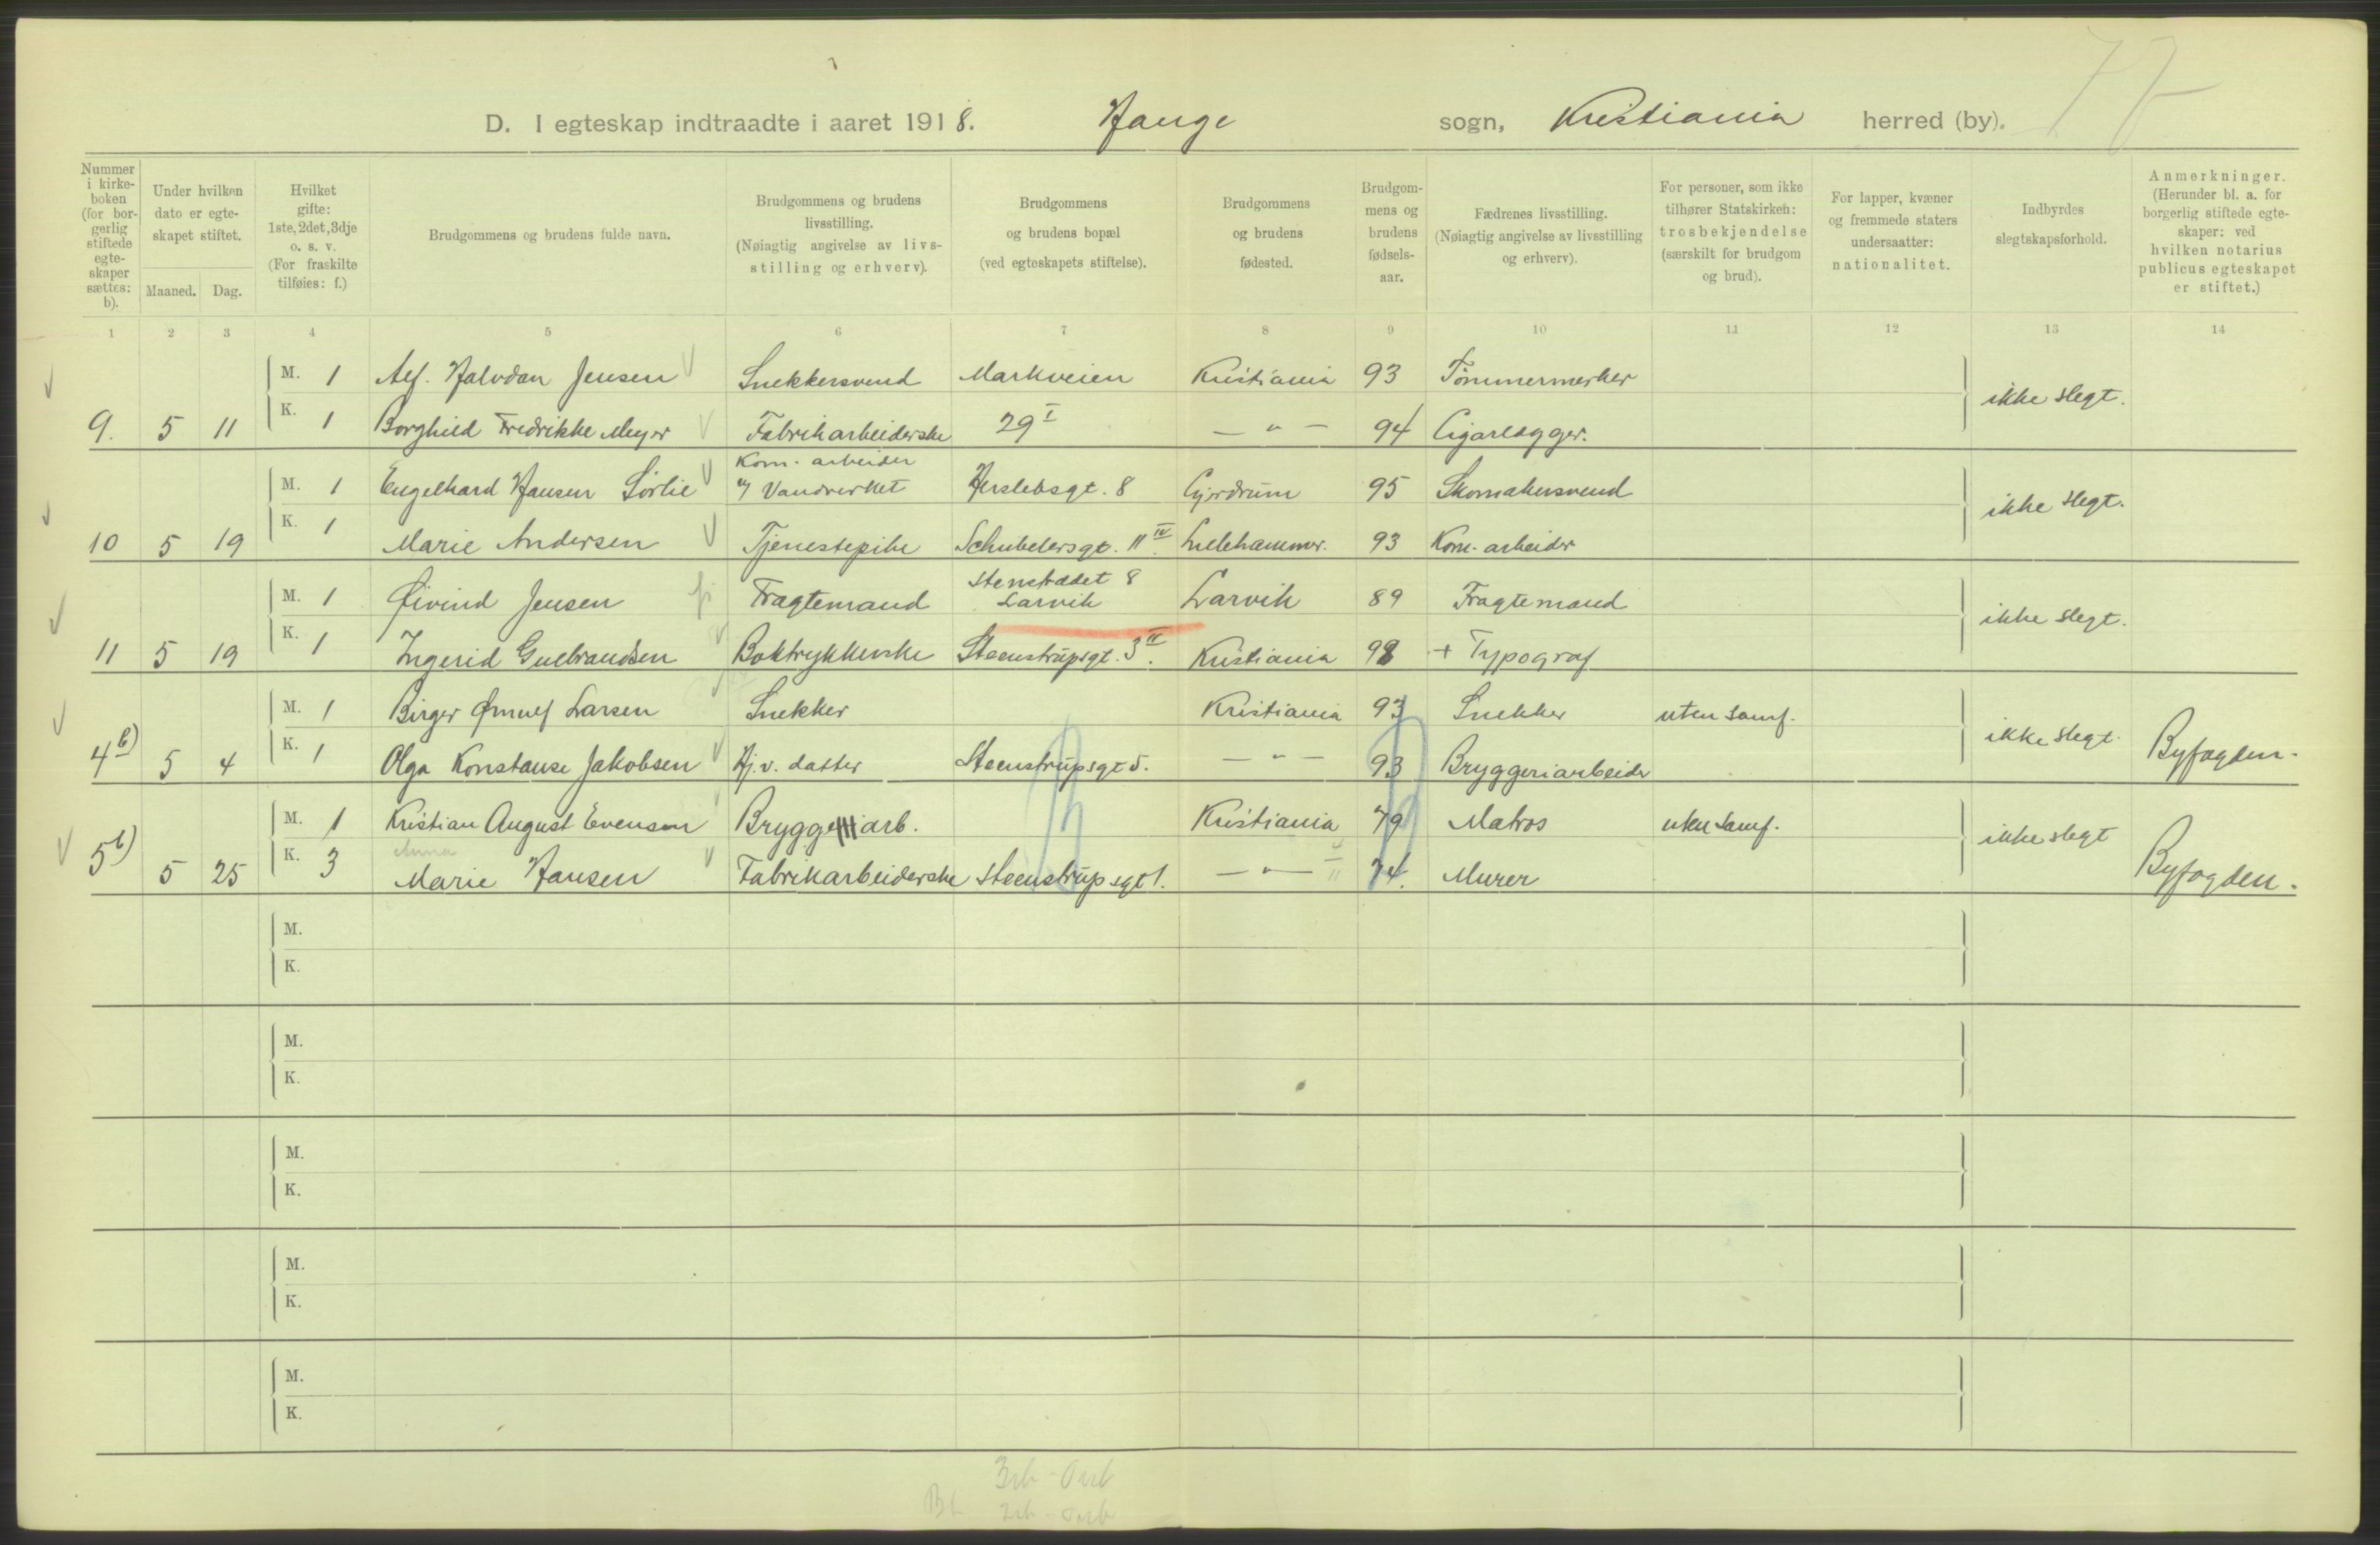 77
D. I egteskap indtraadte i aaret 1918. Hauge sogn, Kristiania herred (by).
Nummer i kirke-boken (for bor-gerlig stiftede egte-skaper sættes: b).
Under hvilken dato er egte-skapet stiftet.
Maaned. Dag.
Hvilket gifte: 1ste, 2det, 3dje o. s. v. (For fraskilte tilføies: f.)
Brudgommens og brudens fulde navn.
Brudgommens og brudens livsstilling. (Nøiagtig angivelse av livs-stilling og erhverv).
Brudgommens og brudens bopæl (ved egteskapets stiftelse).
Brudgommens og brudens fødested.
Brudgom-mens og brudens fødsels-aar.
Fædrenes livsstilling. (Nøiagtig angivelse av livsstilling og erhverv).
For personer, som ikke tilhører Statskirken: trosbekjendelse (særskilt for brudgom og brud).
For lapper, kvæner og fremmede staters undersaatter: nationalitet.
Indbyrdes slegtskapsforhold.
Anmerkninger. (Herunder bl. a. for borgerlig stiftede egte-skaper: ved hvilken notarius publicus egteskapet er stiftet.)
1 2 3 4 5 6 7 8 9 10 11 12 13 14
M. 1 Alf. Halvdan Jensen Snekkersvend Markveien Kristiania 93 Tømmermerker ikke slegt.
9. 5 11 K. 1 Borghild Fredrikke Meyer Fabrikarbeiderske 29 I — " — 94 Cigarlægger.
Kom. arbeider
M. 1 Engelhard Hansen Sørlie v/ Vandverket Herslebsgt. 8 Gjerdrum 95 Skomakersvend ikke slegt.
10 5 19 K. 1 Marie Andersen Tjenestepike Schubelersgt. 11 IV. Lillehammer. 93 Kom. arbeider
Stenstrædet 8
M. 1 Øivind Jensen Fragtemand Larvik Larvik 89 Fragtemand ikke slegt.
11 5 19 K. 1 Ingerid Gulbrandsen Boktrykkerske Steenstrupsgt. 3 II. Kristiania 98 + Typograf
M. 1 Birger Ørnulf Larsen Snekker Kristiania 93 Snekker uten samf. ikke slegt.
4 b) 5 4 K. 1 Olga Konstanse Jakobsen Hj. v. datter Steenstrupsgt 5. — " — 93 Bryggeriarbeider Byfogden.
M. 1 Kristian August Evensen Bryggeriarb. Kristiania 79 Matros uten samf. ikke slegt
Anna
5 b) 5 25 K. 3 Marie Hansen Fabrikarbeiderske Steenstrupsgt 1. — " — 74. Murer Byfogden.
M.
K.
M.
K.
M.
K.
M.
K.
M.
K.